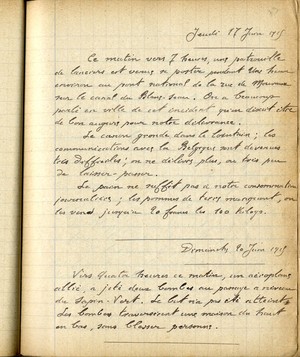 Jeudi 17 Juin 1915
Ce matin vers 7 heures, une patrouille
de lanciers est venue se poster pendant une heure
environ au pont national de la rue de Mouvaux
sur le canal du Blanc-Seau. On a beaucoup
parlé en ville de cet incident qu'on disait être
de bon augure pour notre délivrance.
Le canon gronde dans le lointain ; les
communications avec la Belgique sont devenues
très difficiles ; on ne délivre plus, ou très peu
de laisser-passer.
Le pain ne suffit pas à notre consommation
journalière ; les pommes de terre manquent, on
les vend jusqu'à 20 francs les 100 kilogs.
Dimanche 20 Juin 1915
Vers quatre heures ce matin, un aéroplane
allié, a jeté deux bombes au passage à niveau
du Sapin-Vert. Le but n'a pas été atteint.
Les bombes traversèrent une maison du haut
en bas, sans blesser personne.